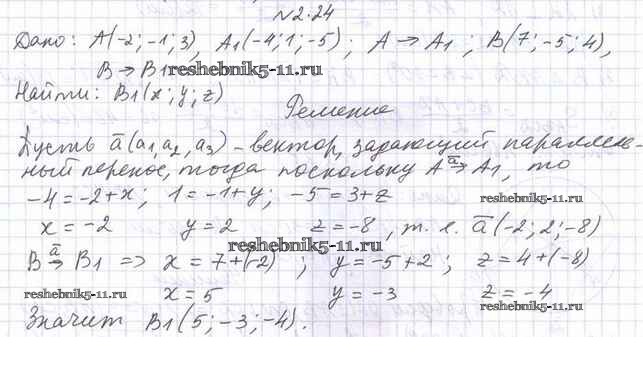 №2.24
Дано: A(-2;-1;3), A1(-4;1;-5); A → A1; B(7;-5;4),
B → B1 reshebnik5-11.ru
Найти: B1(x;y;z)
Решение
Пусть a̅(a1,a2,a3) - вектор, задающий параллель-
ный перенос, тогда поскольку A a̅→ A1, то
-4=-2+x; 1=-1+y; -5=3+z reshebnik5-11.ru
x=-2 y=2 z=-8, т. е. a̅(-2;2;-8)
reshebnik5-11.ru
B a̅→ B1 => x=7+(-2); y=-5+2; z=4+(-8)
reshebnik5-11.ru x=5 y=-3 z=-4
reshebnik5-11.ru
Значит B1(5;-3;-4).